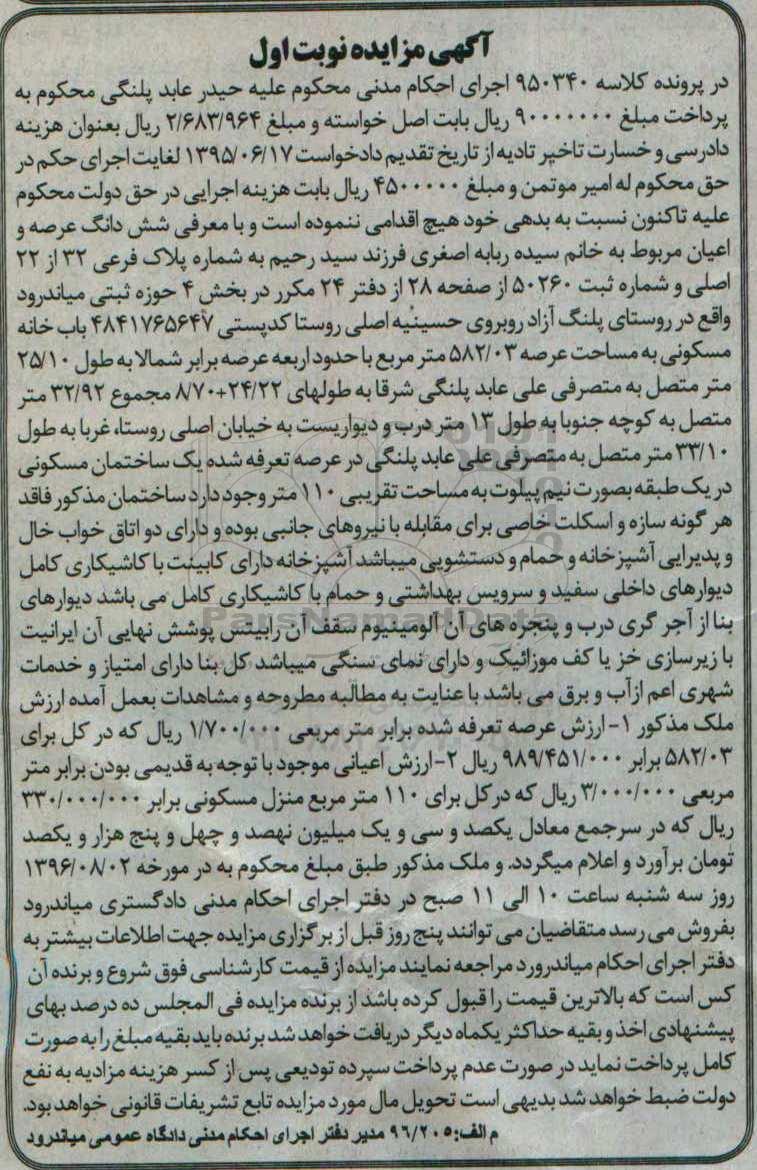 آگهی مزایده نوبت اول
در پرونده کلاسه ۹۵۰۳۴۰ اجرای احکام مدنی محکوم علیه حیدر عابد پلنگی محکوم به
پرداخت مبلغ ۹۰۰۰۰۰۰۰ ریال بابت اصل خواسته و مبلغ ۲/۶۸۳/۹۶۴ ریال بعنوان هزینه
دادرسی و خسارت تاخیر تادیه از تاریخ تقدیم دادخواست ۱۳۹۵/۰۶/۱۷ لغایت اجرای حکم در
حق محکوم له امیر موتمن و مبلغ ۴۵۰۰۰۰۰ ریال بابت هزینه اجرایی در حق دولت محکوم
علیه تاکنون نسبت به بدهی خود هیچ اقدامی ننموده است و با معرفی شش دانگ عرصه و
اعیان مربوط به خانم سیده ربابه اصغری فرزند سید رحیم به شماره پلاک فرعی ۳۲ از ۲۲
اصلی و شماره ثبت ۵۰۲۶۰ از صفحه ۲۸ از دفتر ۲۴ مکرر در بخش ۴ حوزه ثبتی میاندرود
واقع در روستای پلنگ آزاد روبروی حسینیه اصلی روستا کدپستی ۴۸۴۱۷۶۵۶۴۷ باب خانه
مسکونی به مساحت عرصه ۵۸۲/۰۳ متر مربع با حدود اربعه عرصه برابر شمالا به طول ۲۵/۱۰
متر متصل به متصرفی علی عابد پلنگی شرقا به طولهای ۲۴/۲۲+۸/۷۰ مجموع ۳۲/۹۲ متر
متصل به کوچه جنوبا به طول ۱۳ متر درب و دیواریست به خیابان اصلی روستا، غربا به طول
۳۳/۱۰ متر متصل به متصرفی علی عابد پلنگی در عرصه تعرفه شده یک ساختمان مسکونی
در یک طبقه بصورت نیم پیلوت به مساحت تقریبی ۱۱۰ متر وجود دارد ساختمان مذکور فاقد
هر گونه سازه و اسکلت خاصی برای مقابله با نیروهای جانبی بوده و دارای دو اتاق خواب خال
و پدیرایی آشپزخانه و حمام و دستشویی میباشد آشپزخانه دارای کابینت با کاشیکاری کامل
دیوارهای داخلی سفید و سرویس بهداشتی و حمام با کاشیکاری کامل می باشد دیوارهای
بنا از آجر گری درب و پنجره های آن آلومینیوم سقف آن رابیتس پوشش نهایی آن ایرانیت
با زیرسازی خز یا کف موزائیک و دارای نمای سنگی میباشد کل بنا دارای امتیاز و خدمات
شهری اعم از آب و برق می باشد با عنایت به مطالبه مطروحه و مشاهدات بعمل آمده ارزش
ملک مذکور ۱- ارزش عرصه تعرفه شده برابر متر مربعی ۱/۷۰۰/۰۰۰ ریال که در کل برای
۵۸۲/۰۳ برابر ۹۸۹/۴۵۱/۰۰۰ ریال ۲-ارزش اعیانی موجود با توجه به قدیمی بودن برابر متر
مربعی ۳/۰۰۰/۰۰۰ ریال که درکل برای ۱۱۰ متر مربع منزل مسکونی برابر ۳۳۰/۰۰۰/۰۰۰
ریال که در سرجمع معادل یکصد و سی و یک میلیون نهصد و چهل و پنج هزار و یکصد
تومان برآورد و اعلام میگردد. و ملک مذکور طبق مبلغ محکوم به در مورخه ۱۳۹۶/۰۸/۰۲
روز سه شنبه ساعت ۱۰ الی ۱۱ صبح در دفتر اجرای احکام مدنی دادگستری میاندرود
بفروش می رسد متقاضیان می توانند پنج روز قبل از برگزاری مزایده جهت اطلاعات بیشتر به
دفتر اجرای احکام میاندرورد مراجعه نمایند مزایده از قیمت کارشناسی فوق شروع و برنده آن
کس است که بالاترین قیمت را قبول کرده باشد از برنده مزایده فی المجلس ده درصد بهای
پیشنهادی اخذ و بقیه حداکثر یکماه دیگر دریافت خواهد شد برنده باید بقیه مبلغ را به صورت
کامل پرداخت نماید در صورت عدم پرداخت سپرده تودیعی پس از کسر هزینه مزادیه به نفع
دولت ضبط خواهد شد بدیهی است تحویل مال مورد مزایده تابع تشریفات قانونی خواهد بود.
م الف: ۹۶/۲۰۵ مدیر دفتر اجرای احکام مدنی دادگاه عمومی میاندرود
ParsNamadData